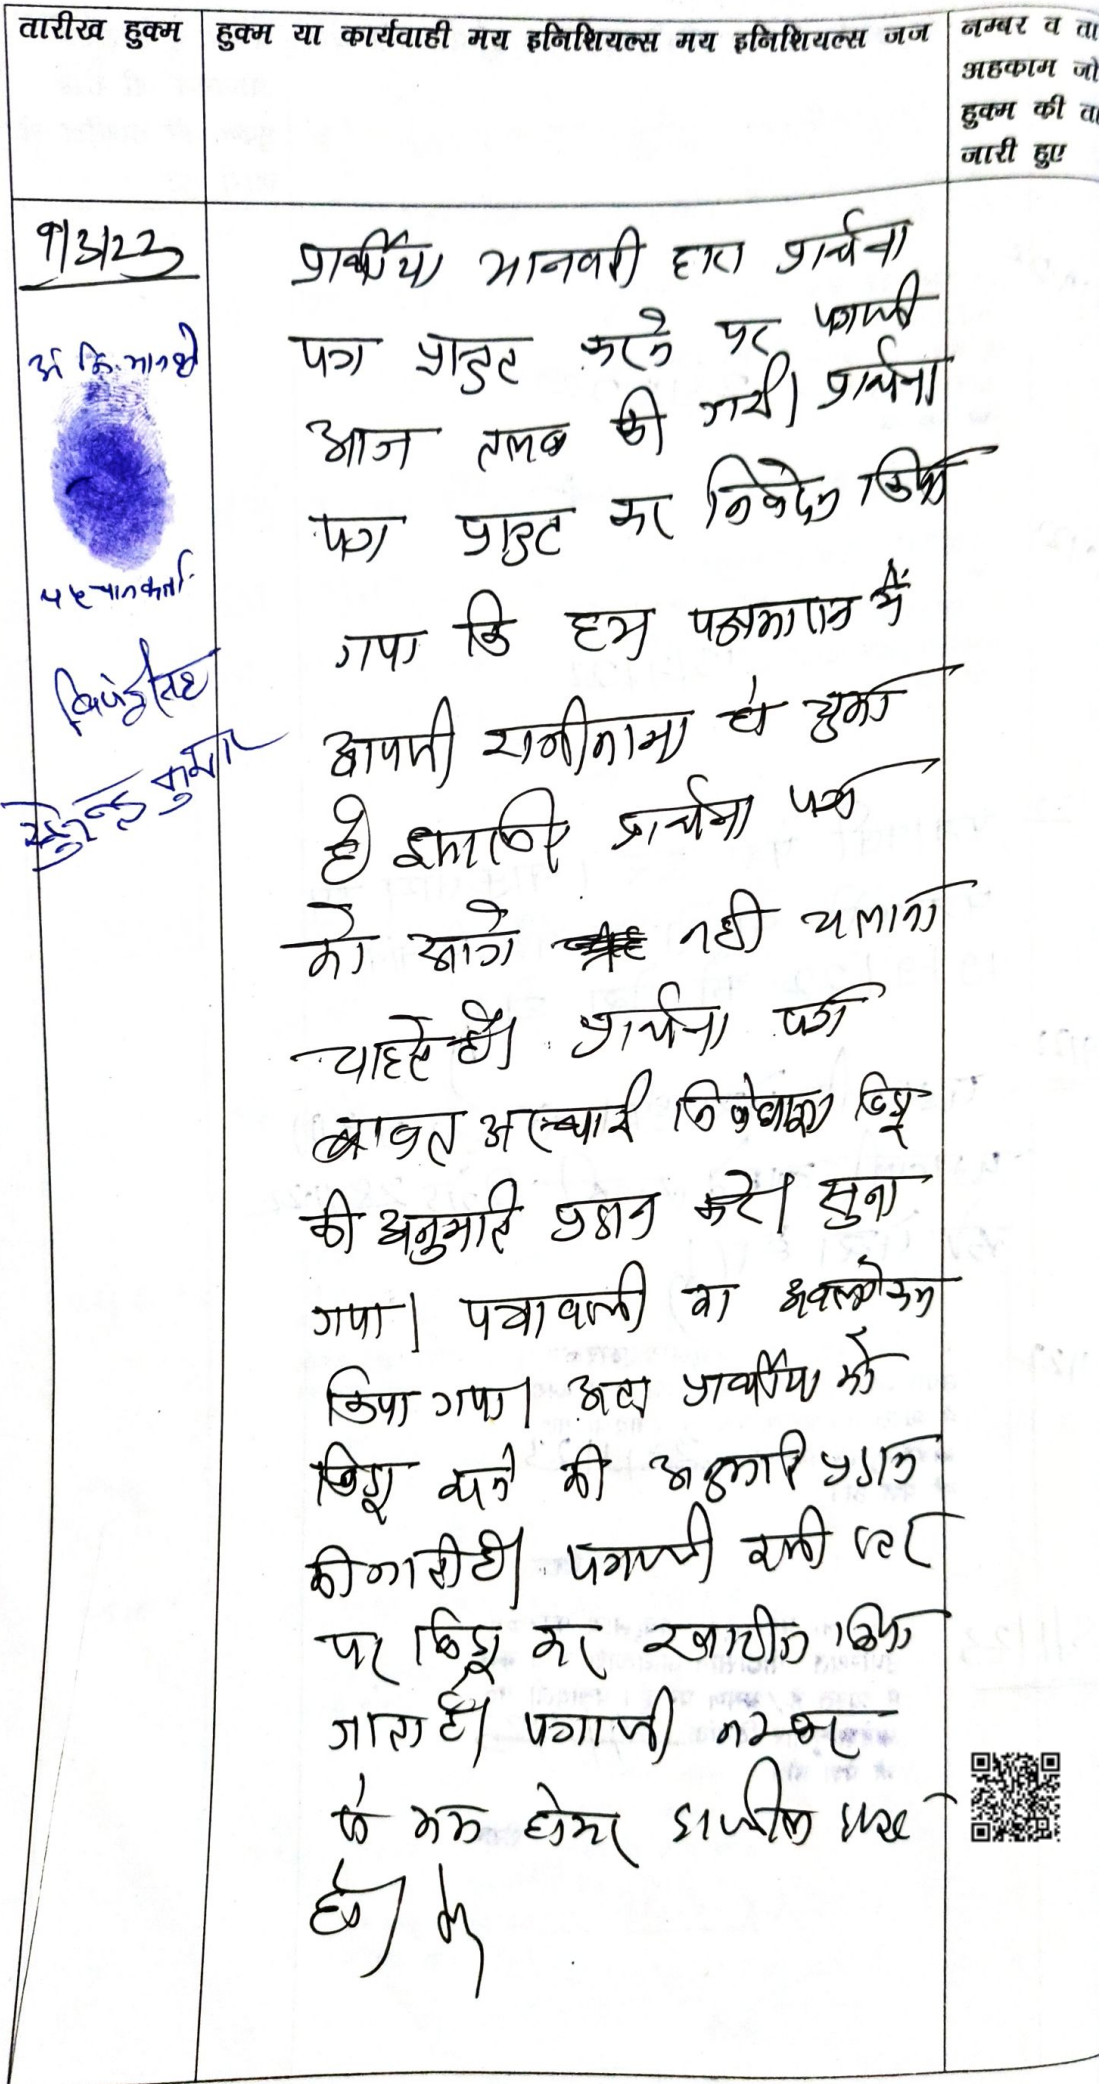 तारीख हुक्म
हुक्म या कार्यवाही मय इनिशियल्स मय इनिशियल्स जज
नम्बर व ता
अहकाम जो
हुक्म की ता
जारी हुए
9/3/23
पहचानकर्ता
कुमार
प्रार्थीया मानवती द्वारा प्रार्थना
पत्र प्रस्तुत करने पर पत्रावली
आज तलब की गयी। प्रार्थना
पत्र प्रस्तुत कर निवेदन किया
गया कि हम पक्षकारान में
आपसी राजीनामा हो चुका
है इसलिए प्रार्थना पत्र
को आगे नही चलाना
चाहते है। प्रार्थना पत्र
बाबत अस्थाई निषेधाज्ञा विड्रा
की अनुमति प्रदान करे। सुना
गया। पत्रावली का अवलोकन
किया गया। अतः प्रार्थीया को
विड्रा करने की अनुमति प्रदान
की जाती है। पत्रावली इसी स्तर
पर विड्रा कर खारीज किया
जाता है। पत्रावली नम्बर
से कम होकर दाखील दफ्तर
हो।